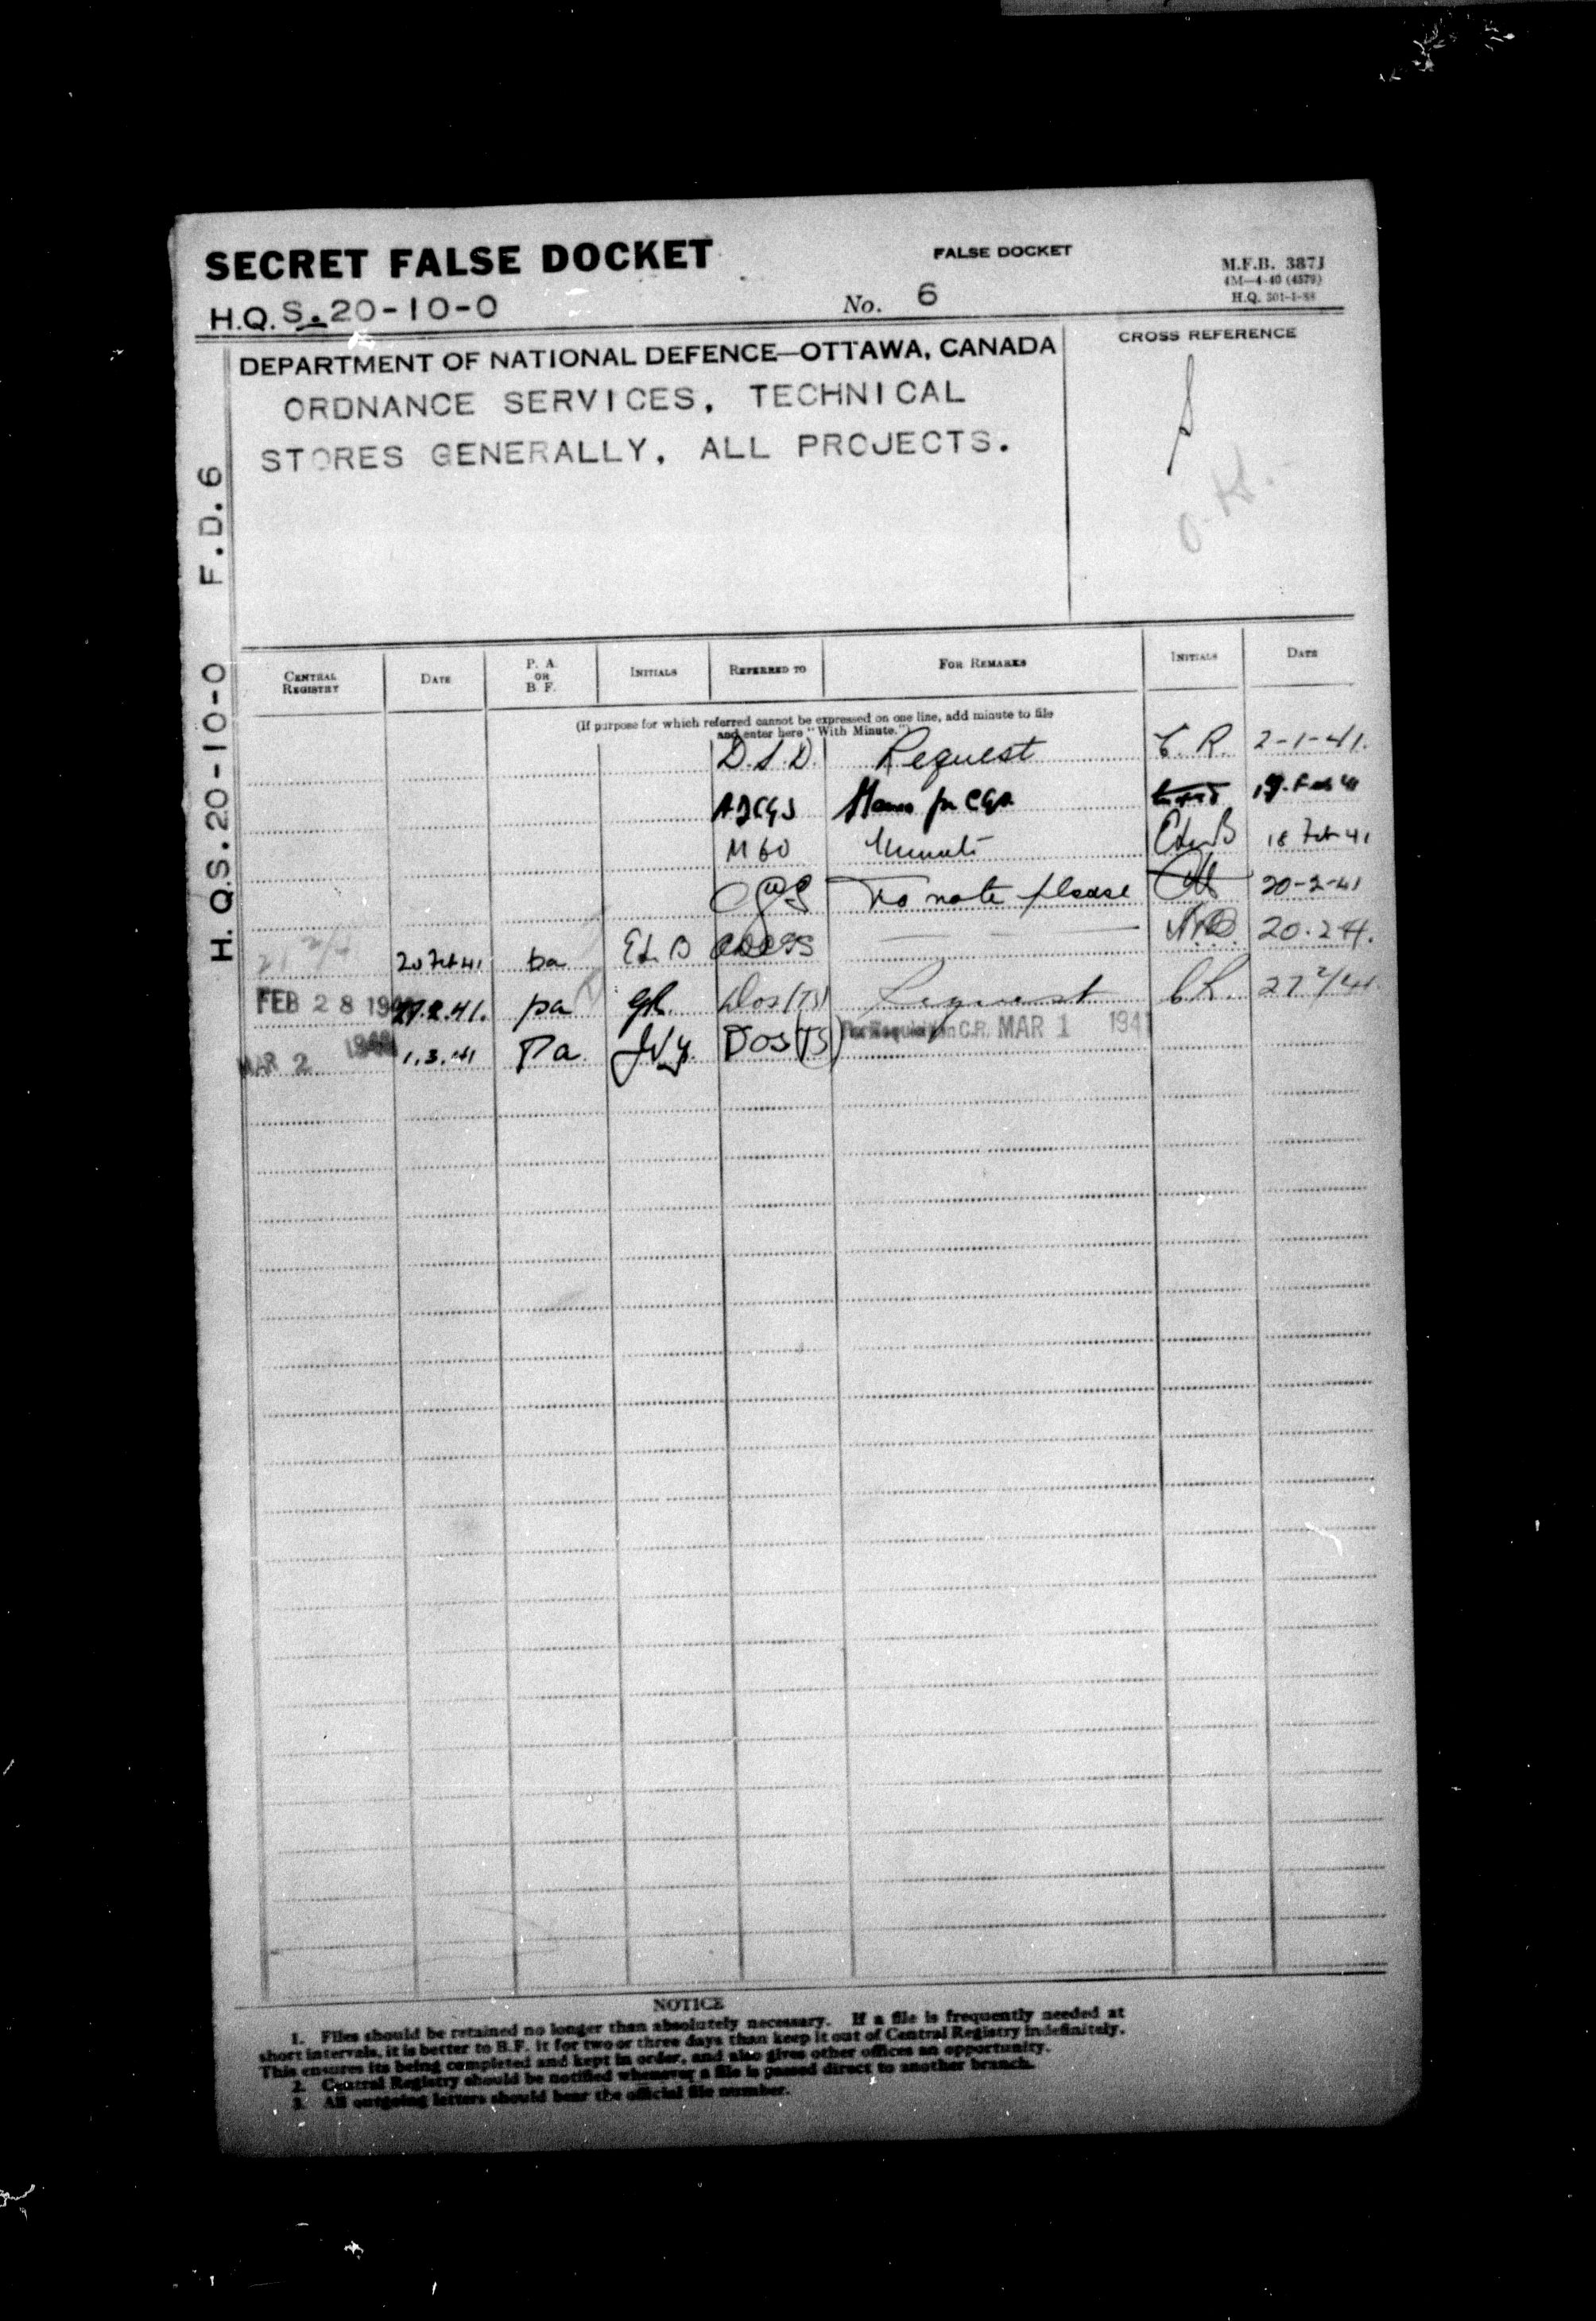 SECRET FALSE DOCKET
FALSE DOCKET
M.F.B. 387J
4M—4-40 (4579)
H.Q. 301-1-88
H.Q. S. 20-10-0
No. 6
DEPARTMENT OF NATIONAL DEFENCE—OTTAWA, CANADA
CROSS REFERENCE
ORDNANCE SERVICES, TECHNICAL
STORES GENERALLY, ALL PROJECTS.
O.K.
H.Q.S. 20-10-0 F.D. 6
CENTRAL REGISTRY DATE P. A. OR B. F. INITIALS REFERRED TO FOR REMARKS INITIALS DATE
(If purpose for which referred cannot be expressed on one line, add minute to file
and enter here "With Minute.")
D.S.D. Request C.R. 2-1-41.
for CGS Feb 41
18 Feb 41
To note please 20-2-41
20 Feb 41 pa
FEB 28 27.2.41. pa DOS(TS) Request C.R. 27 2/41
MAR 2 1.3.41 Pa. DOS(TS) For Requisition C.R. MAR 1 1941
NOTICE
1. Files should be retained no longer than absolutely necessary. If a file is frequently needed at
short intervals, it is better to B.F. it for two or three days than keep it out of Central Registry indefinitely.
This ensures its being completed and kept in order, and also gives other offices an opportunity.
2. Central Registry should be notified whenever a file is passed direct to another branch.
3. All outgoing letters should bear the official file number.